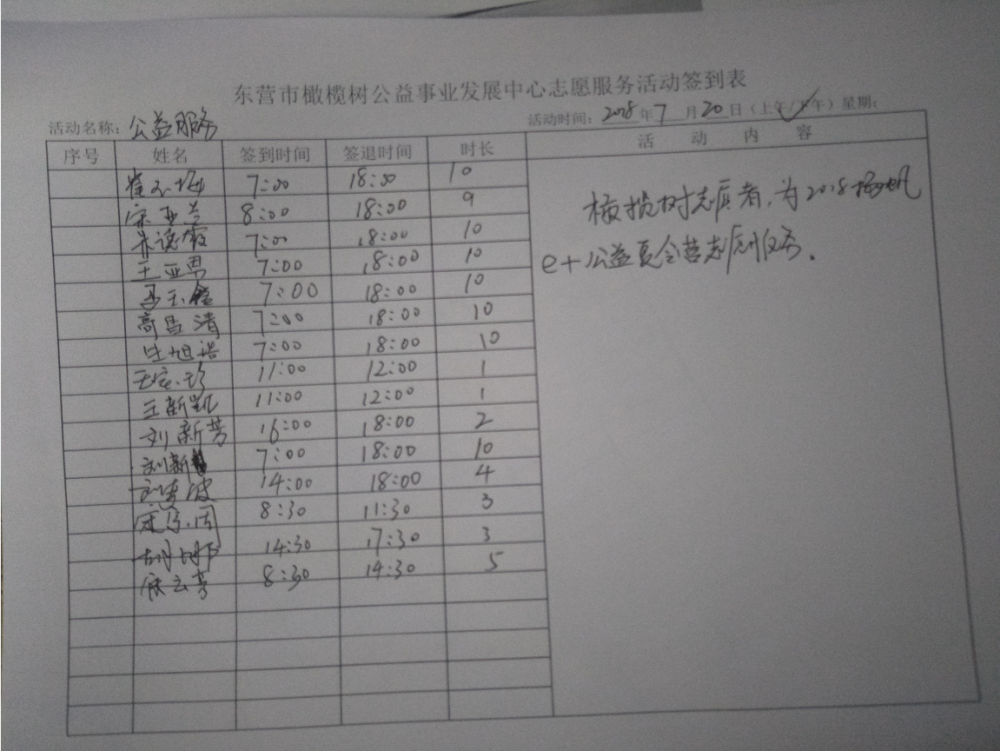 东营市橄榄树公益事业发展中心志愿服务活动签到表
活动名称：公益服务 活动时间：2018年7月20日（上午/下午）星期：
序号 姓名 签到时间 签退时间 时长 活动内容
7:00 18:00 10
宋亚兰 8:00 18:00 9
7:00 18:00 10
王亚男 7:00 18:00 10
7:00 18:00 10
高昌清 7:00 18:00 10
7:00 18:00 10
11:00 12:00 1
王新凯 11:00 12:00 1
刘新芳 16:00 18:00 2
刘新 7:00 18:00 10
14:00 18:00 4
8:30 11:30 3
14:30 17:30 3
8:30 14:30 5
橄榄树志愿者，为2018扬帆
e+公益夏令营志愿服务.